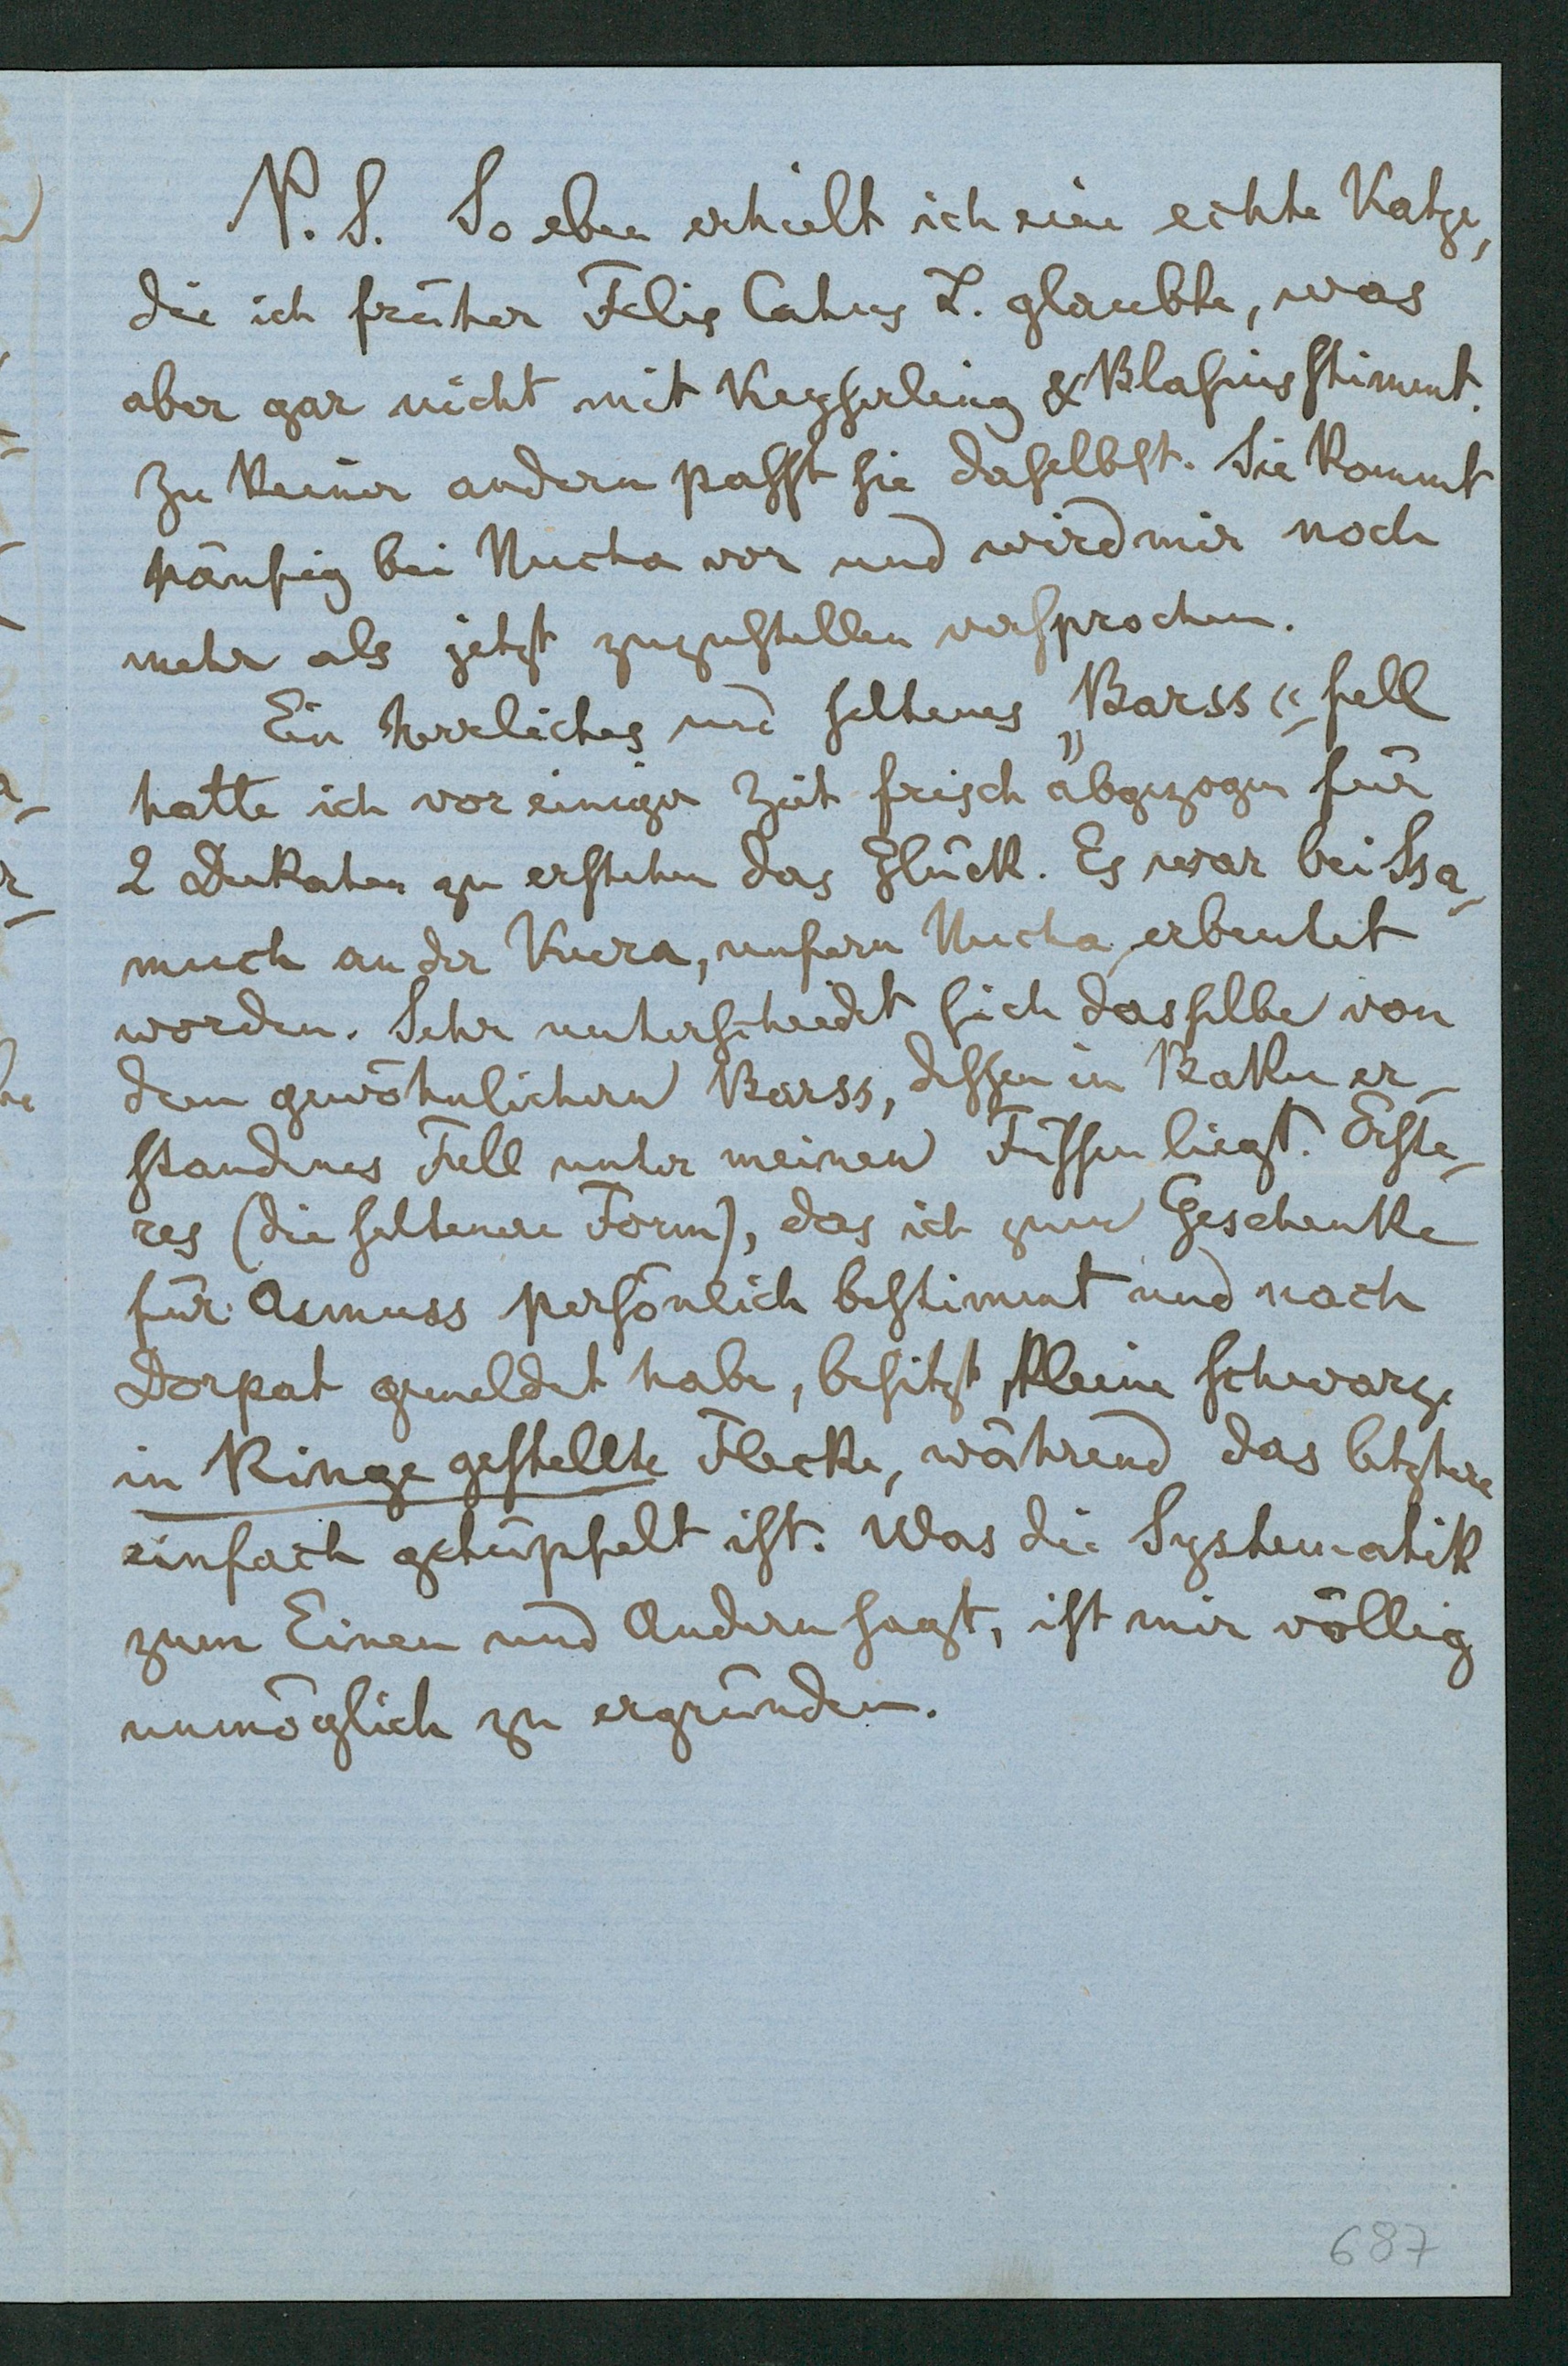 P. S. So eben erhielt ich eine echte Katze,
die ich früher Felis Catus L. glaubte, was
aber gar nicht mit Keyserling & Blasius stimmt.
Zu keiner andern passt sie daselbst. Sie kommt
häufig bei Nucha vor und wird mir noch
mehr als jetzt zuzustellen versprochen.
Ein herrliches und seltenes „Barss“-fell
hatte ich vor einiger Zeit frisch abgezogen für
2 Dukaten zu erstehen das Glück. Es war bei Ssa-
much an der Kura, unfern Nucha, erbeutet
worden. Sehr unterscheidet sich dasselbe von
dem gewöhnlichern Barss, dessen in Baku er-
standenes Fell unter meinen Füssen liegt. Erste-
res (die seltenere Form), das ich zum Geschenke
für Asmuss persönlich bestimmt und nach
Dorpat gemeldet habe, besitzt kleine schwarze
in Ringe gestellte Flecke, während das letztere
einfach getüpfelt ist. Was die Systematik
zum Einen und Andern sagt, ist mir völlig
unmöglich zu ergründen.
687